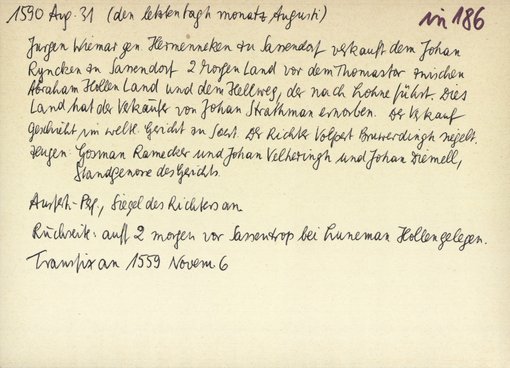 1590 Aug. 31 (den letzten tagh monatz Augusti)
in 186
Jurgen Wiemar gen Hermenneken zu Sassendorf verkauft dem Johan
Ryncken zu Sassendorf 2 Morgen Land vor dem Thomastor zwischen
Abraham Hollen Land und dem Hellweg, der nach Lohne führt. Dies
Land hat der Verkäufer von Johan Strathman erworben. Der Verkauf
geschieht im weltl. Gericht zu Soest. Der Richter Volpert Bruwerdingh siegelt.
Zeugen: Gosman Ramecker und Johan Veltheringh und Johan Diemell,
Standgenossen des Gerichts.
Ausf.-Perg., Siegel des Richters an.
Rückseite: auff 2 morgen vor Sassentrop bei Luneman Hollen gelegen.
Transfix an 1559 Novem 6